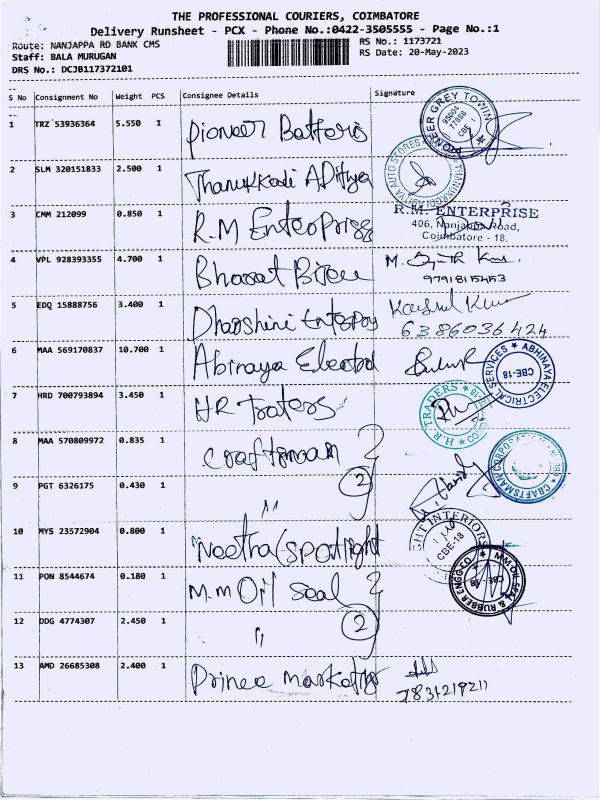 THE PROFESSIONAL COURIERS, COIMBATORE
Delivery Runsheet - PCX - Phone No.:0422-3505555 - Page No.:1
Route: NANJAPPA RD BANK CMS RS No.: 1173721
Staff: BALA MURUGAN RS Date: 20-May-2023
DRS No.: DCJB117372101
S No Consignment No Weight PCS Consignee Details Signature
1 TRZ 53936364 5.550 1 Pioneer Batteris
PIONEER GREY TOWN
CBE
2 SLM 320151833 2.500 1 Thanukkodi ADithya
AUTO STORES
3 CMM 212099 0.850 1 R.M Enterprises
R.M. ENTERPRISE
406, Nanjappa Road,
Coimbatore - 18.
4 VPL 928393355 4.700 1 Bharat Bijee
M.
9791815453
5 EDQ 15888756 3.400 1 Dharshini
6386036424
6 MAA 569170837 10.700 1 Abinaya Electrical
ABHINAYA ELECTRICAL SERVICES
CBE-18
7 HRD 700793894 3.450 1 HR Traters
H.R. TRADERS
8 MAA 570809972 0.835 1 craftsmaan
CRAFTSMAN CORPORATION
9 PGT 6326175 0.430 1 " 2
10 MYS 23572904 0.800 1 Neetha (spotlight
GHT INTERIORS
CBE-18
11 PQN 8544674 0.180 1 M.M Oil Seal
M.M.OIL SEAL & RUBBER ENGG CO
CBE-18
12 DDG 4774307 2.450 1 " 2
13 AMD 26685308 2.400 1 Prince marketing
7831219211